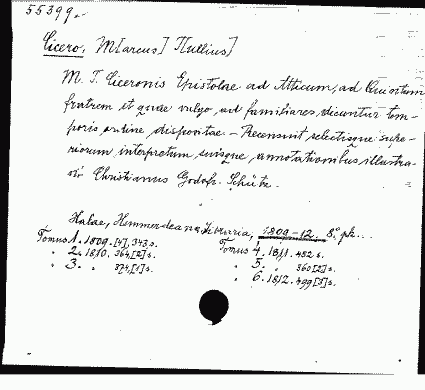 55399.
Cicero, M[arcus] T[ullius]
M. T. Ciceronis Epistolae ad Atticum, ad Quintum
fratrem et quae vulgo ad familiares dicuntur tem-
poris ordine dispositae. – Recensuit selectisque supe-
riorum interpretum suisque annotationibus illustra-
vit Christianus Godofr. Schütz.
Halae, Hemmerdeana Libraria, 1809-12. 8°
Tomus 1. 1809. [4], 343 s.
" 2. 1810. 364, [2] s.
" 3. " 374, [1] s.
Tomus 4. 1811. 482 s.
" 5. " 560 [2] s.
" 6. 1812. 499 [3] s.